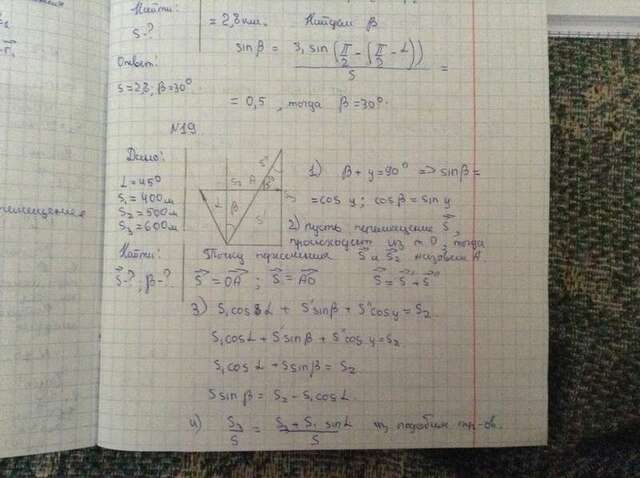 Найти:
S-?
Ответ:
S=2,8; β=30°
= 2,8 км. Найдем β
sin β = 3, sin (π/2 - (π/2 - L)) / S =
= 0,5, тогда β=30°.
N19.
Дано:
L=45°
S₁=400м
S₂=500м
S₃=600м
Найти:
S-?; β-?
S₂ A S"
L β S'
1) β + y = 90° => sin β =
= cos y; cos β = sin y
2) пусть перемещение S,
происходит из т. O, тогда
Точку пересечения S и S₂ назовем A
S' = OA; S = AD S = S' + S"
3) S₁cos L + S'sin β + S"cos y = S₂
S₁cos L + S'sin β + S"cos y = S₂
S₁cos L + S sin β = S₂
S sin β = S₂ - S₁cos L.
4) S₃/S = S₃ + S₁ sin L / S из подобия тр-ов.